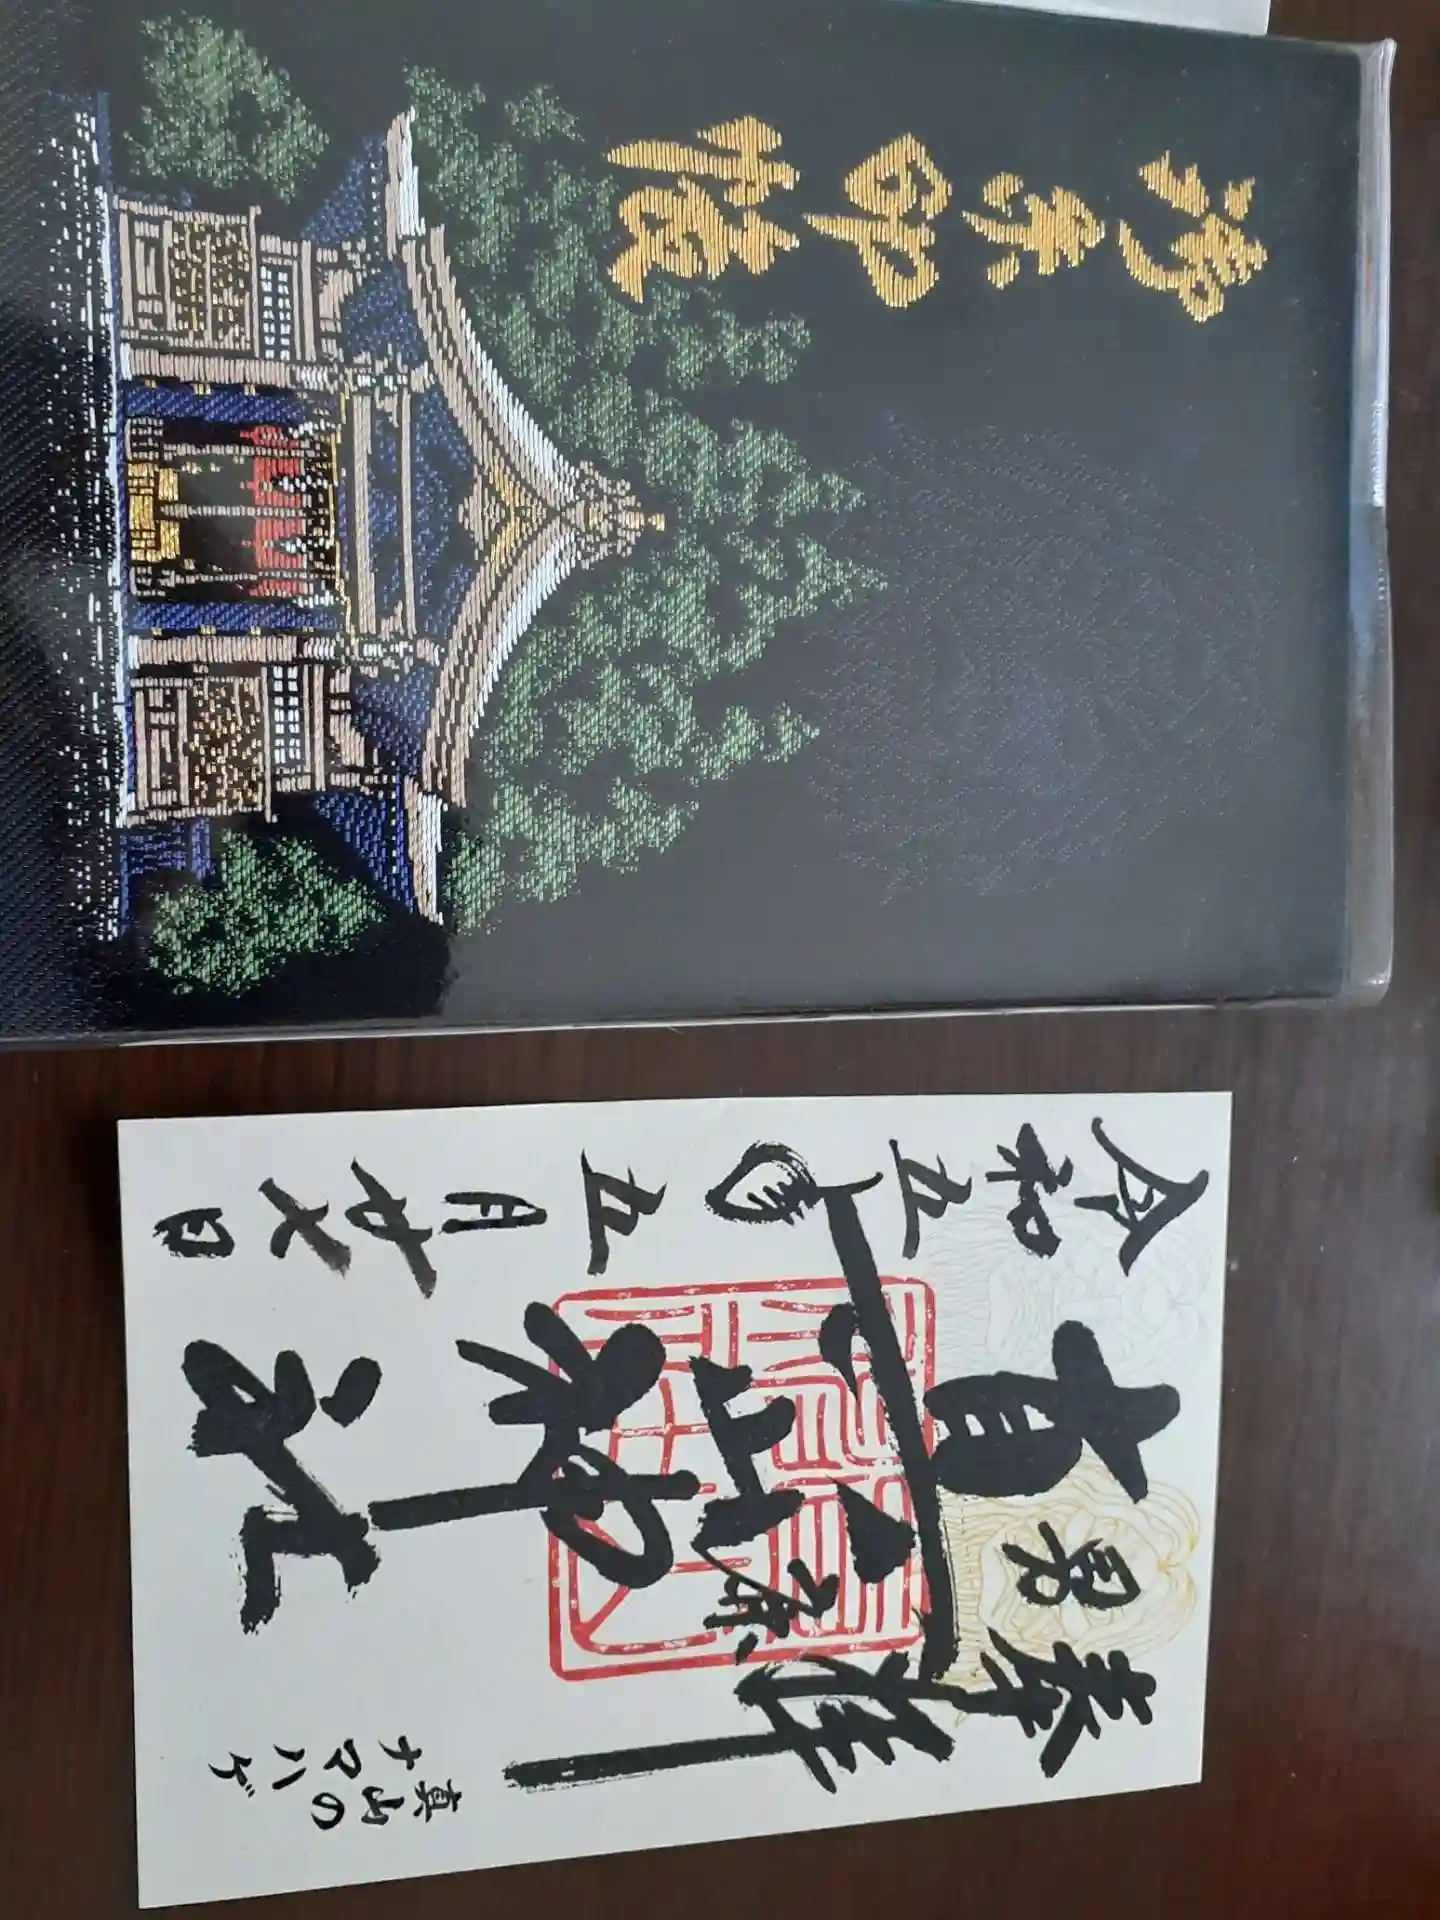 御朱印帳
奉拝
真山の
ナマハゲ
男鹿
真山神社
令和五年五月廿七日